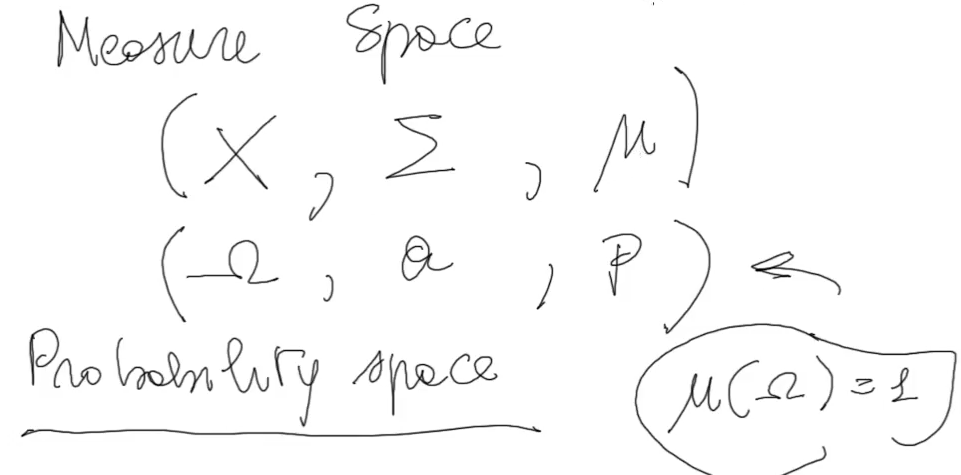 Measure Space
(X, Σ, μ)
(Ω, a, P)
Probability space
μ(Ω) = 1